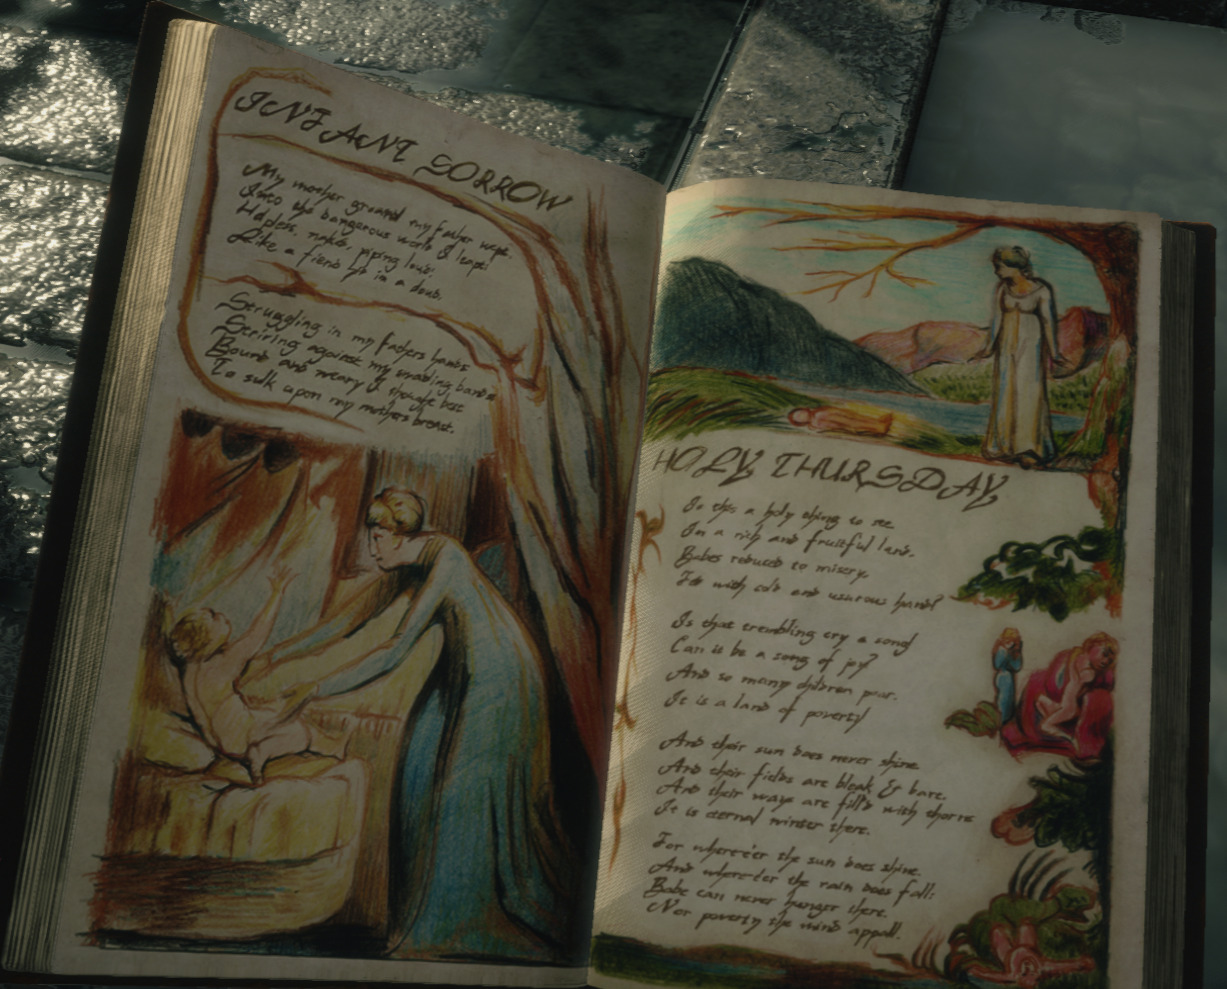 INFANT SORROW
My mother groand my father wept.
Into the dangerous world I leapt
Helpless, naked, piping loud:
Like a fiend hid in a cloud.
Struggling in my fathers hands
Striving against my swadling bands
Bound and weary I thought best
To sulk upon my mothers breast.
HOLY THURSDAY
Is this a holy thing to see
In a rich and fruitful land.
Babes reduced to misery.
Fed with cold and usurous hand?
Is that trembling cry a song
Can it be a song of joy?
And so many children poor.
It is a land of poverty!
And their sun does never shine.
And their fields are bleak & bare.
And their ways are fill'd with thorns
It is eternal winter there.
For where-e'er the sun does shine.
And where-e'er the rain does fall:
Babe can never hunger there.
Nor poverty the mind appall.